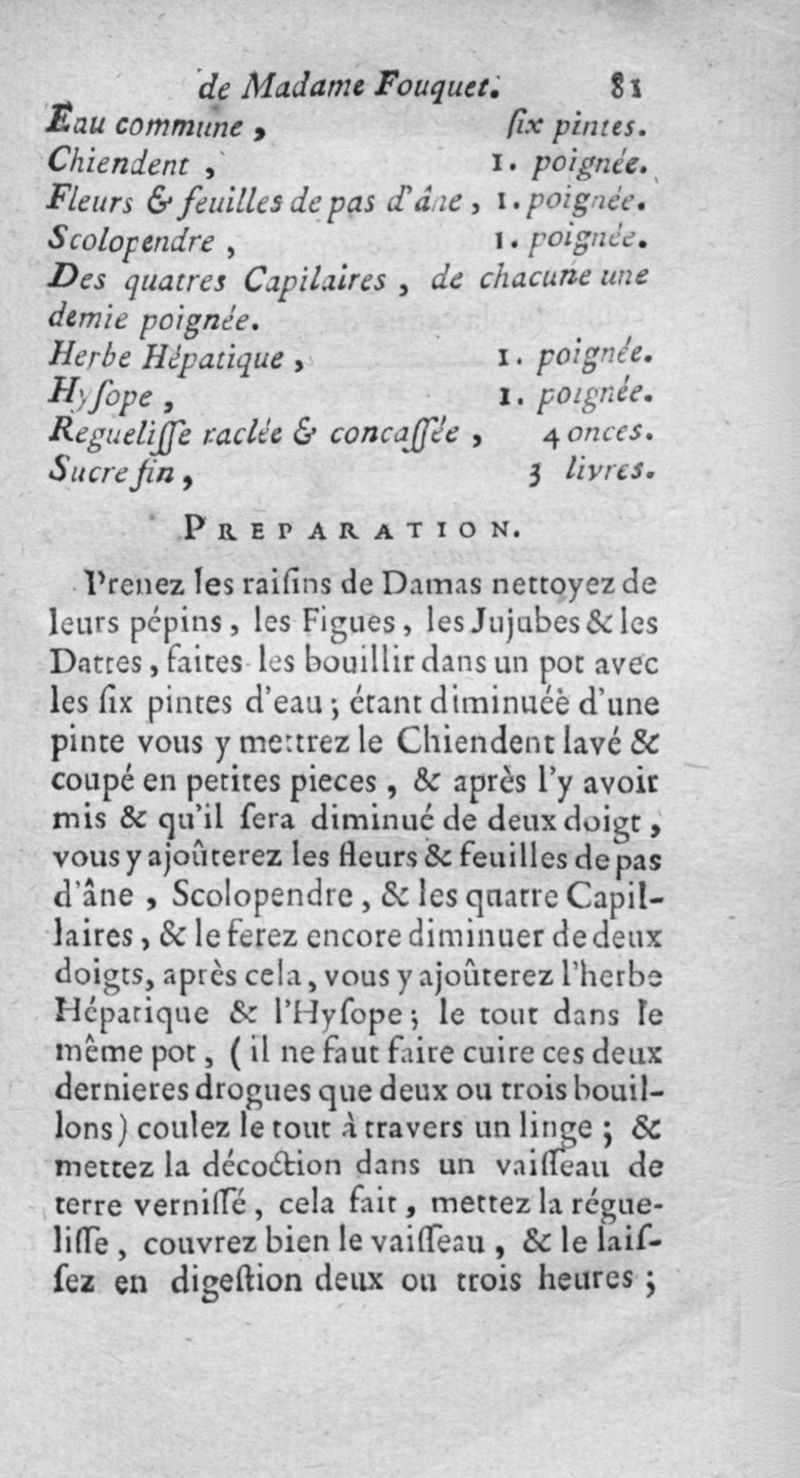 de Madame Fouquet. 81
Eau commune, ſix pintes.
Chiendent, 1. poignée.
Fleurs & feuilles de pas d'âne, 1. poignée.
Scolopendre, 1. poignée.
Des quatres Capilaires, de chacune une
demie poignée.
Herbe Hépatique, 1. poignée.
Hyſope, 1. poignée.
Regueliſſe raclée & concaſſée, 4 onces.
Sucre fin, 3 livres.
PREPARATION.
Prenez les raiſins de Damas nettoyez de
leurs pépins, les Figues, les Jujubes & les
Dattes, faites-les bouillir dans un pot avec
les ſix pintes d'eau; étant diminuéè d'une
pinte vous y mettrez le Chiendent lavé &
coupé en petites pieces, & après l'y avoir
mis & qu'il ſera diminué de deux doigt,
vous y ajoûterez les fleurs & feuilles de pas
d'âne, Scolopendre, & les qnatre Capil-
laires, & le ferez encore diminuer de deux
doigts, après cela, vous y ajoûterez l'herbe
Hépatique & l'Hyſope; le tout dans le
même pot, (il ne faut faire cuire ces deux
dernieres drogues que deux ou trois bouil-
lons) coulez le tout à travers un linge; &
mettez la décoction dans un vaiſſeau de
terre verniſſé, cela fait, mettez la régue-
liſſe, couvrez bien le vaiſſeau, & le laiſ-
ſez en digeſtion deux ou trois heures;